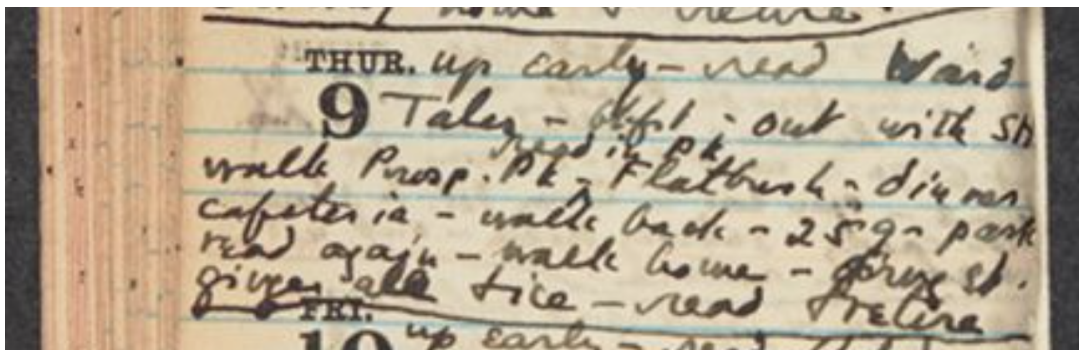 home & retire.
THUR. up early - read Weird
9 Tales - bkfst - out with SH
read in pk
walk Prosp. Pk - Flatbush - dinner
cafeteria - walk back - 259 - park
read again - walk home - drug st.
ginger ale & ice - read & retire
FRI.
10 up early - read